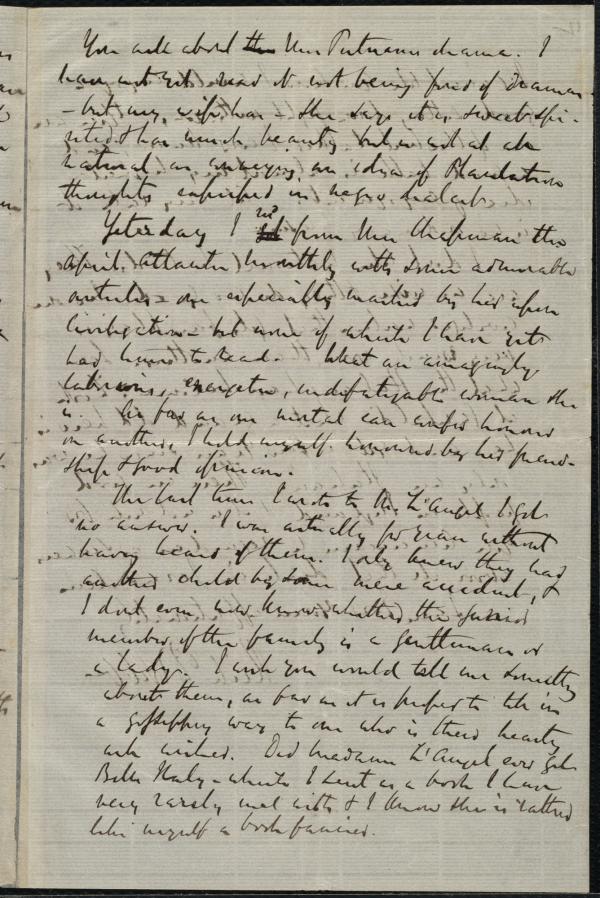 You ask about the Mrs Putnams drama. I
have not yet read it not being fond of Dramas
- but my wife has - she says it is sweet spi-
rited & has much beauty but is not at all
natural as conveying an idea of Plantation
thoughts expressed in negro dialect.
Yesterday I recd from Mrs Chapman the
April Atlantic Monthly with some admirable
articles - one especially marked by her upon
Civilization - but none of which I have yet
had leisure to read. What an amazingly
laborious, energetic, indefatigable woman she
is. As far as one mortal can confer honour
on another, I hold myself honoured by her friend-
ship & good opinion.
The last time I wrote to Mr L'Angel I got
no answer. I was actually for years without
having heard of them. I only knew they had
another child by some mere accident, &
I dont even now know whether the junior
member of the family is a gentleman or
a lady. I wish you would tell me something
about them, as far as it is proper to tell in
a gossipping way to one who is their hearty
well wisher. Did Madame L'Angel ever get
Bella Italy - which I sent as a book I have
very rarely met with & I know she is rather
like myself a book fancier.